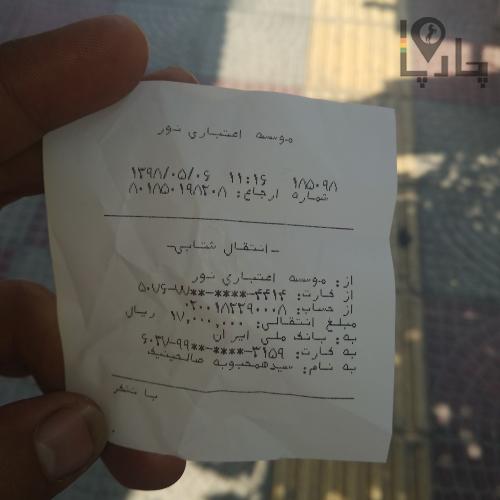 چارپا
موسسه اعتباري نور
۱۳۹۸/۰۵/۰۶ ۱۱:۱۶ ۱۸۵۰۹۸
شماره ارجاع: ۸۰۱۸۵۰۱۹۸۲۰۸
-انتقال شتابي-
از: موسسه اعتباري نور
از کارت: ۵۰۷۶-۷۷**-****-۴۴۱۴
از حساب: ۰۲۰۰۱۸۲۲۹۰۰۰۸
مبلغ انتقالي: ۱۷,۰۰۰,۰۰۰ ريال
به: بانک ملي ايران
به کارت: ۶۰۳۷-۹۹**-****-۳۱۵۹
به نام: سيدهمحبوبه صالحينيف
با تشکر